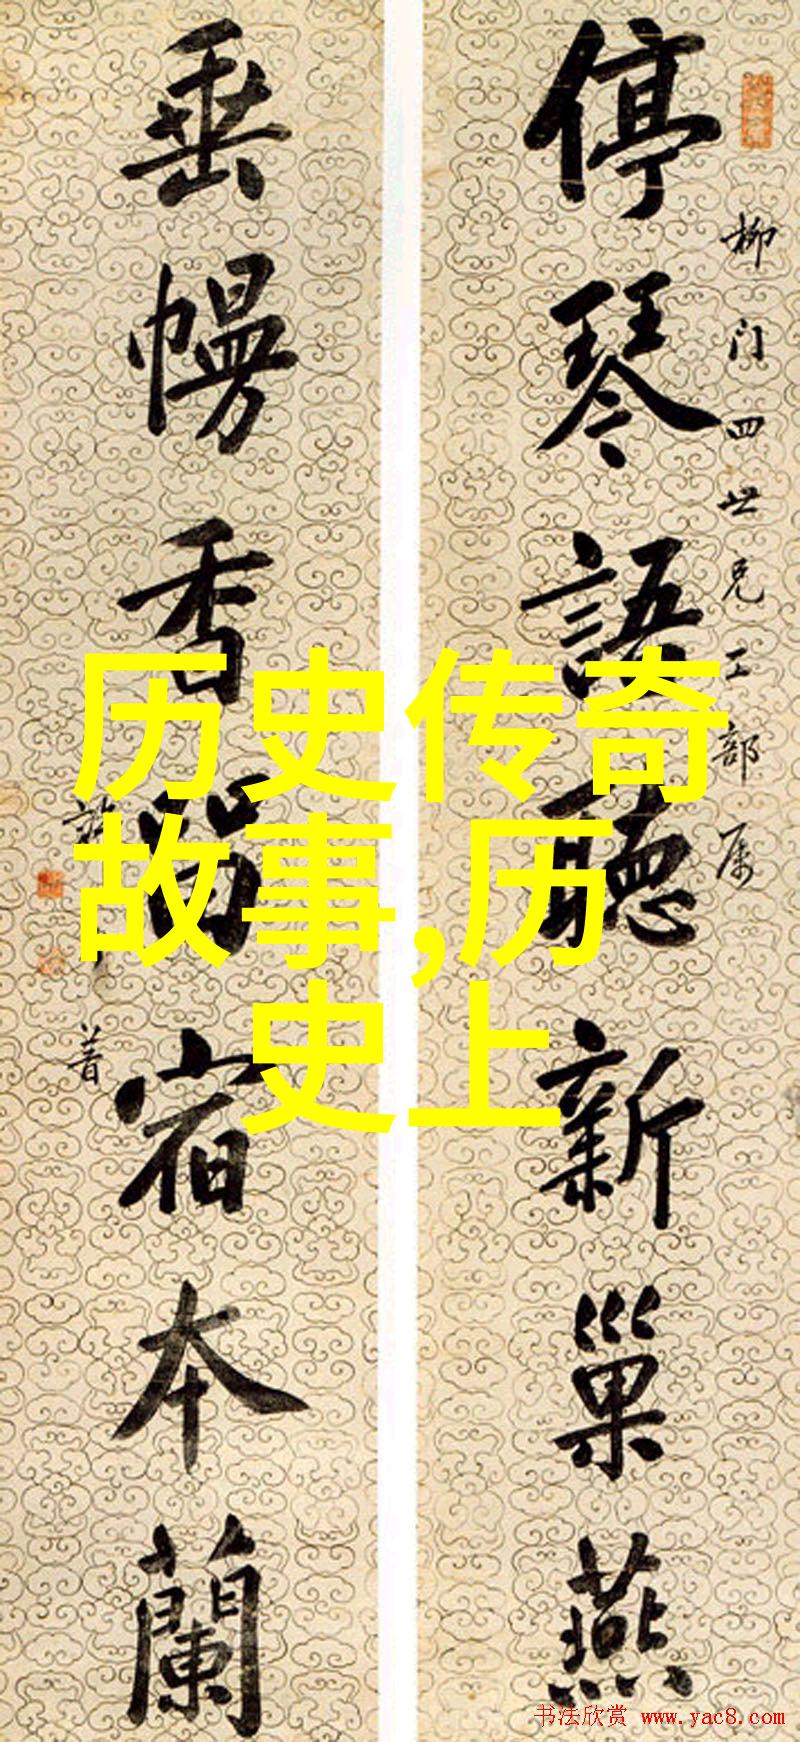 停琴語聽新巢燕
柳门四世兄工部属
垂幔香留宿本蘭
普
历史传奇
故事,历
史上
书法欣赏 www.yac8.com